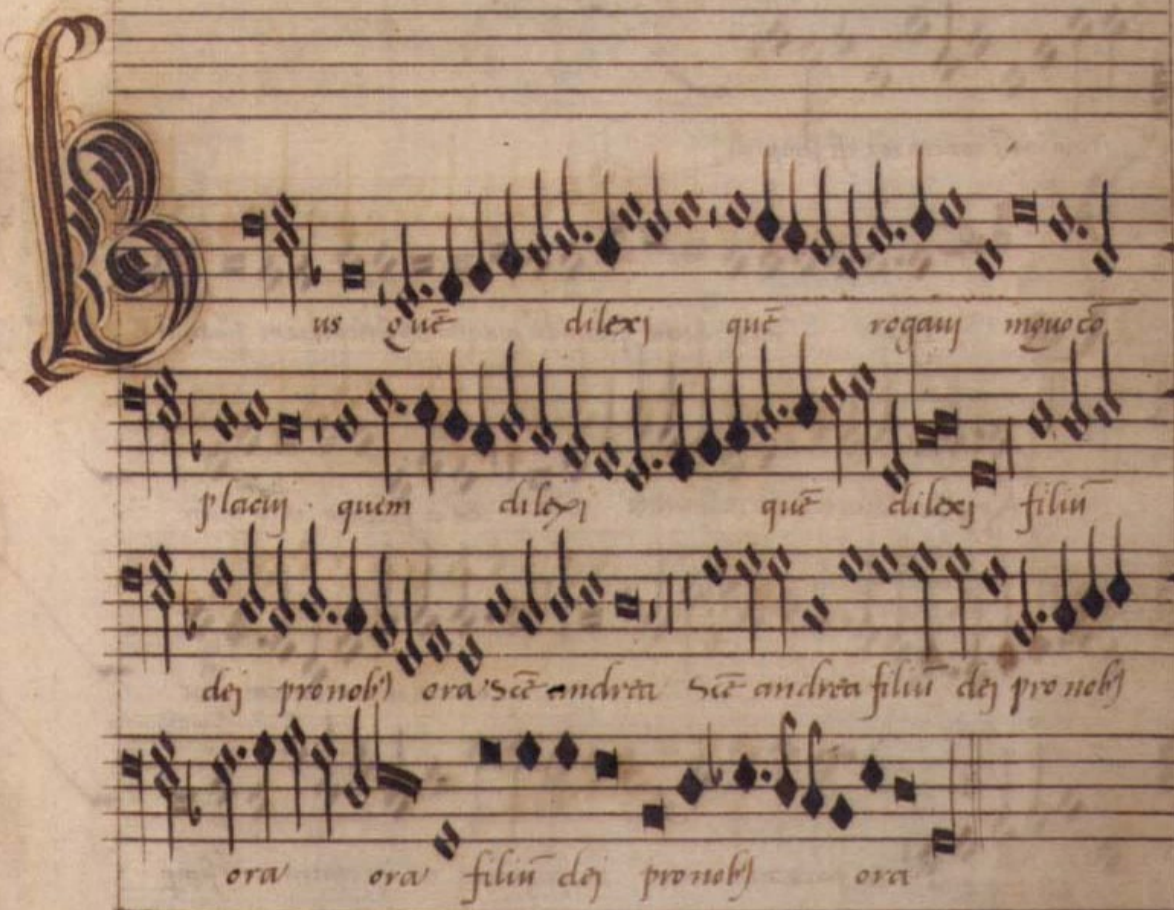 B us quē dilexi quē rogaui inquo cō
placuj quem dilexi quē dilexi filiū
dej pronobꝭ ora Scē andrea Scē andrea filiū dej pro nobꝭ
ora ora filiū dej pronobꝭ ora